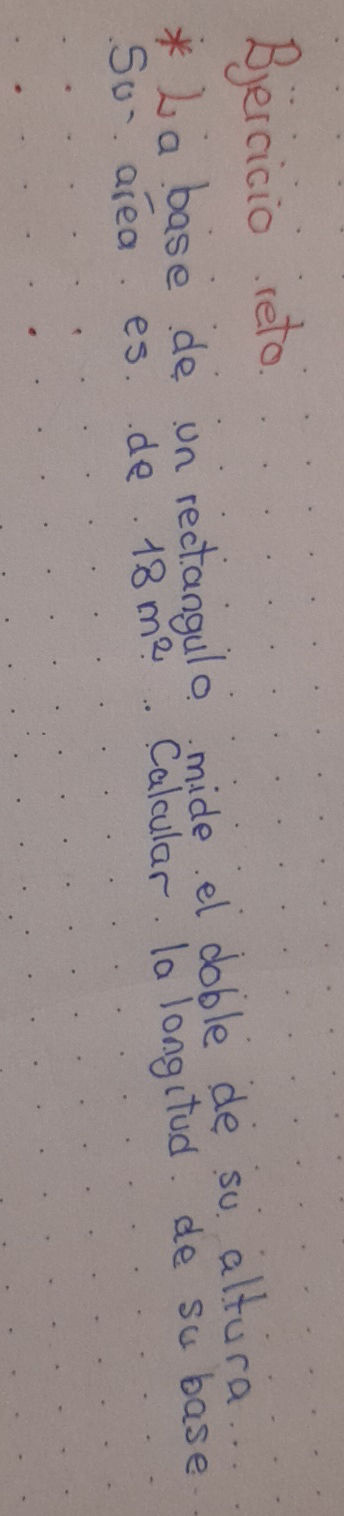 Ejercicio reto.
* La base de un rectangulo mide el doble de su altura.
Su área es de 18 m². Calcular la longitud de su base.